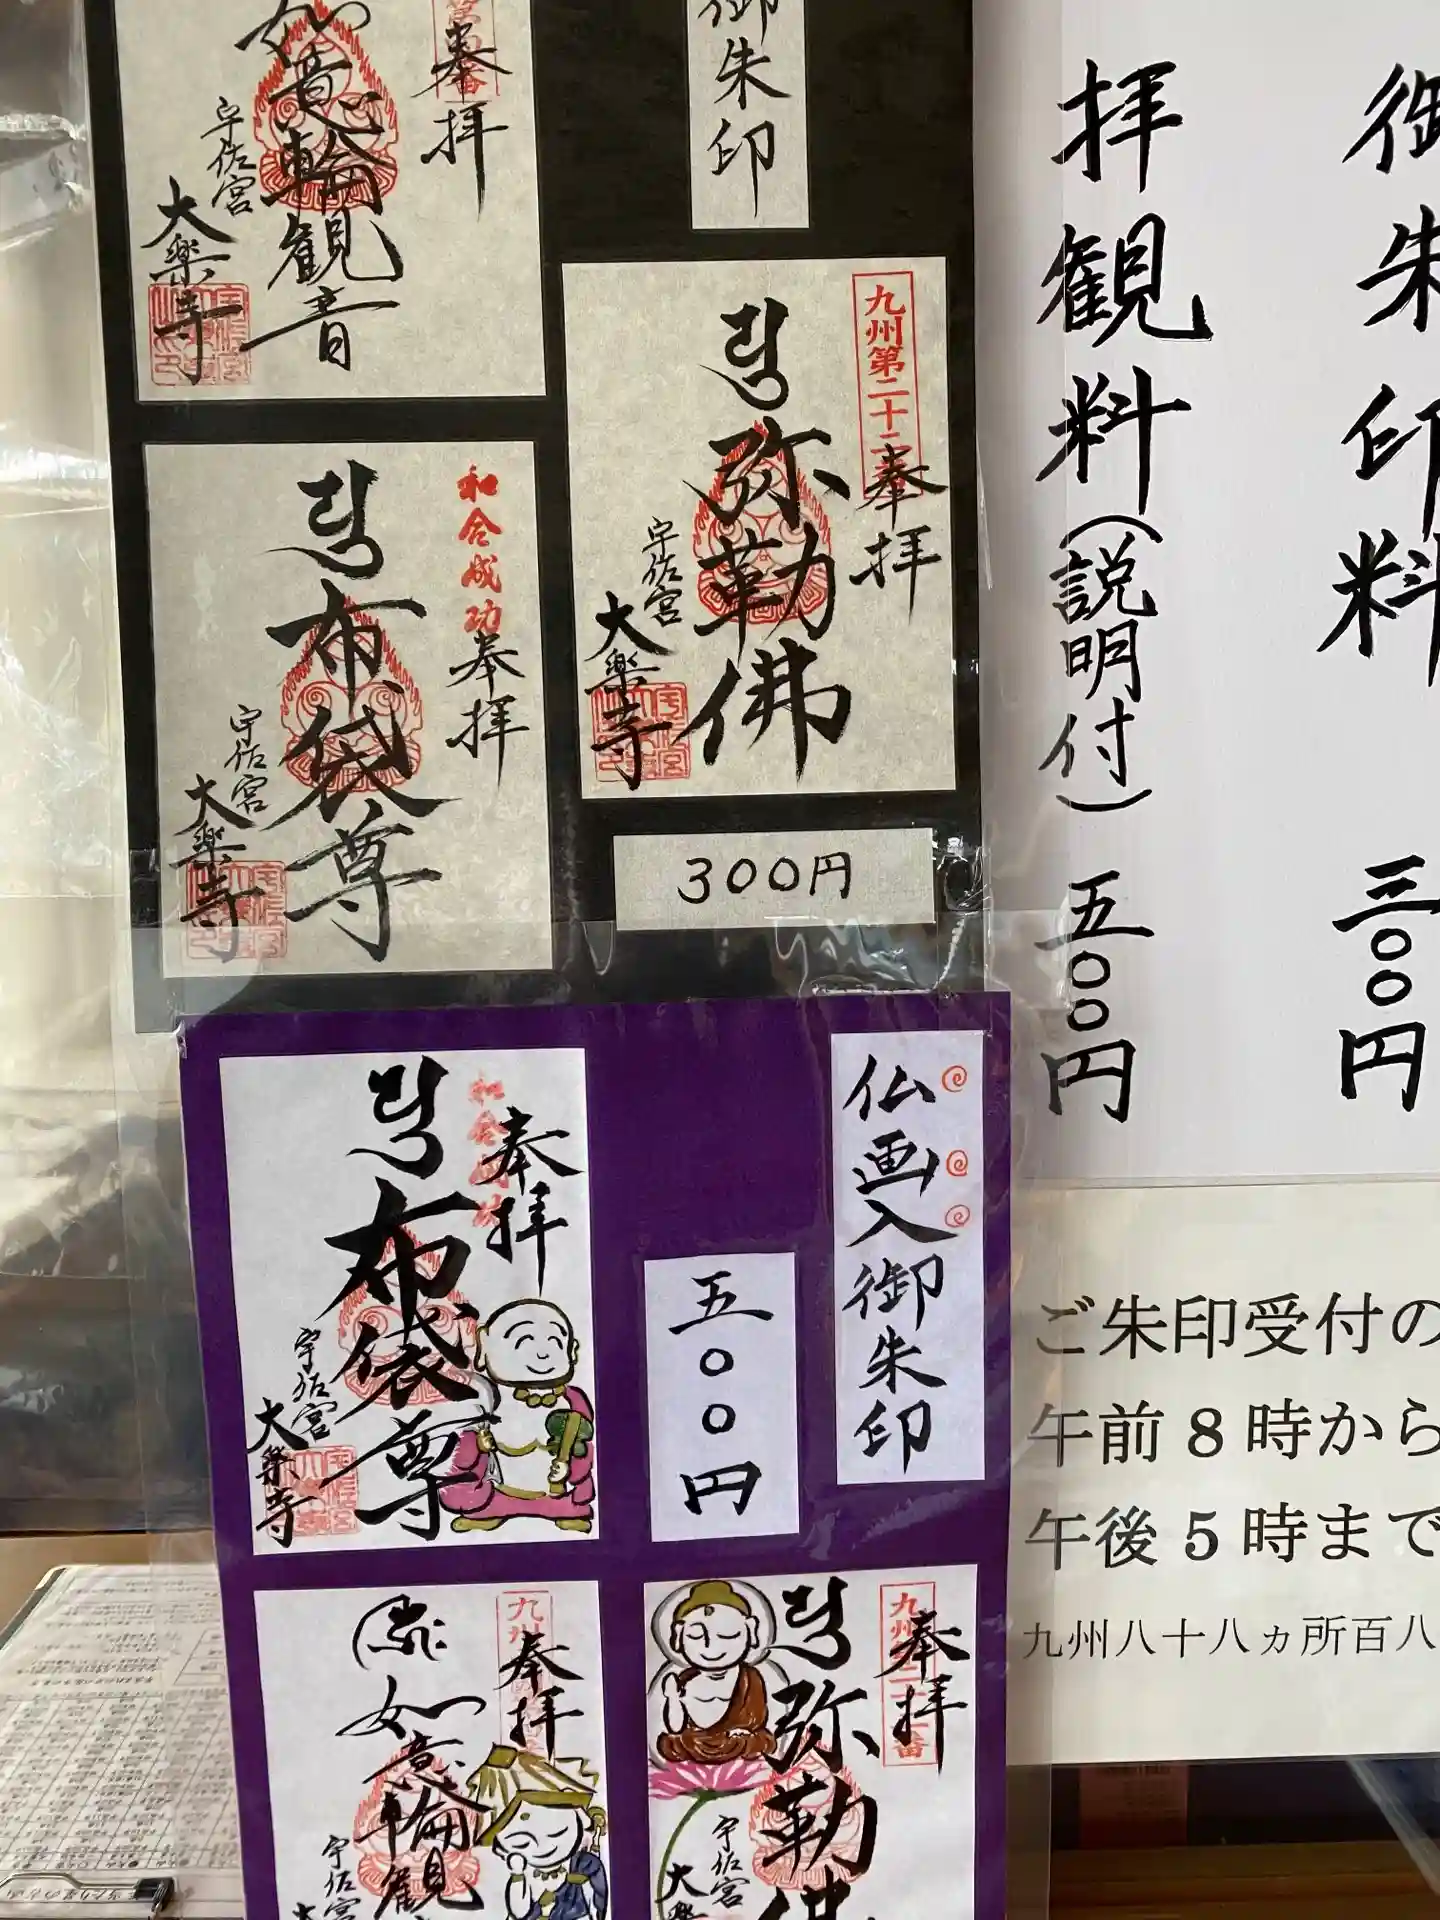 御朱印料
三〇〇円
拝観料(説明付)五〇〇円
御朱印
奉拝
如意輪観音
宇佐宮
大楽寺
九州第二十二番
奉拝
弥勒佛
宇佐宮
大楽寺
和合成功
奉拝
布袋尊
宇佐宮
大楽寺
300円
仏画入御朱印
五〇〇円
奉拝
布袋尊
宇佐宮
大楽寺
奉拝
弥勒佛
宇佐宮
大楽
奉拝
如意輪観
宇佐宮
ご朱印受付の
午前8時から
午後5時まで
九州八十八ヵ所百八